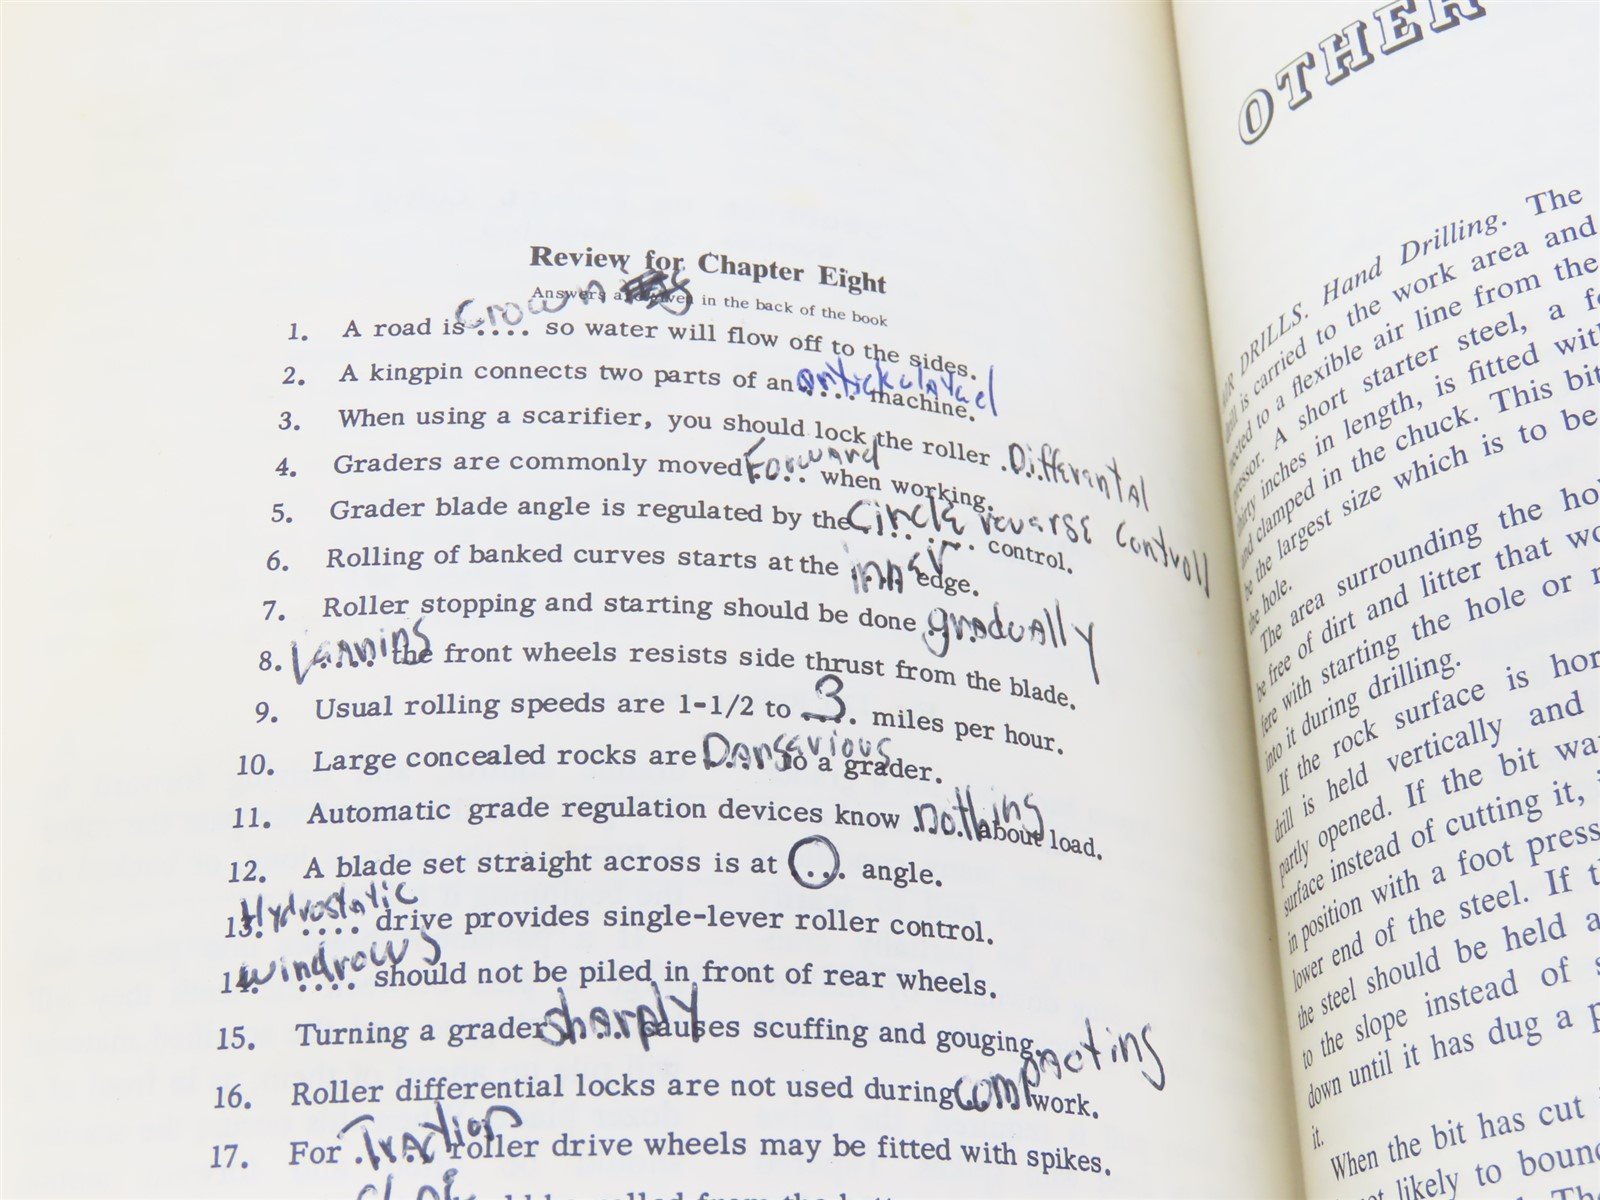 Review for Chapter Eight
Answers are given in the back of the book
1. A road is Crown .... so water will flow off to the sides.
2. A kingpin connects two parts of an artickulated .... machine.
3. When using a scarifier, you should lock the roller .Differantal
4. Graders are commonly moved Forward .... when working.
5. Grader blade angle is regulated by the Circle reverse controll .... .... control.
6. Rolling of banked curves starts at the inner .... edge.
7. Roller stopping and starting should be done gradually
8. Leaning .... the front wheels resists side thrust from the blade.
9. Usual rolling speeds are 1-1/2 to 3 .... miles per hour.
10. Large concealed rocks are Dangerious .... to a grader.
11. Automatic grade regulation devices know nothing .... about load.
12. A blade set straight across is at O .... angle.
13. Hydrostatic .... drive provides single-lever roller control.
14. windrows .... should not be piled in front of rear wheels.
15. Turning a grader sharply .... causes scuffing and gouging.
16. Roller differential locks are not used during compacting work.
17. For Traction .... roller drive wheels may be fitted with spikes.
OTHER
AIR DRILLS. Hand Drilling. The
drill is carried to the work area and
nected to a flexible air line from the
pressor. A short starter steel, a
thirty inches in length, is fitted
and clamped in the chuck. This bit
be the largest size which is to be
the hole.
The area surrounding the
be free of dirt and litter that
fere with starting the hole or
into it during drilling.
If the rock surface is
drill is held vertically and
partly opened. If the bit
surface instead of cutting it,
in position with a foot
lower end of the steel. If
the steel should be held
to the slope instead of
down until it has dug a
it.
When the bit has cut
likely to